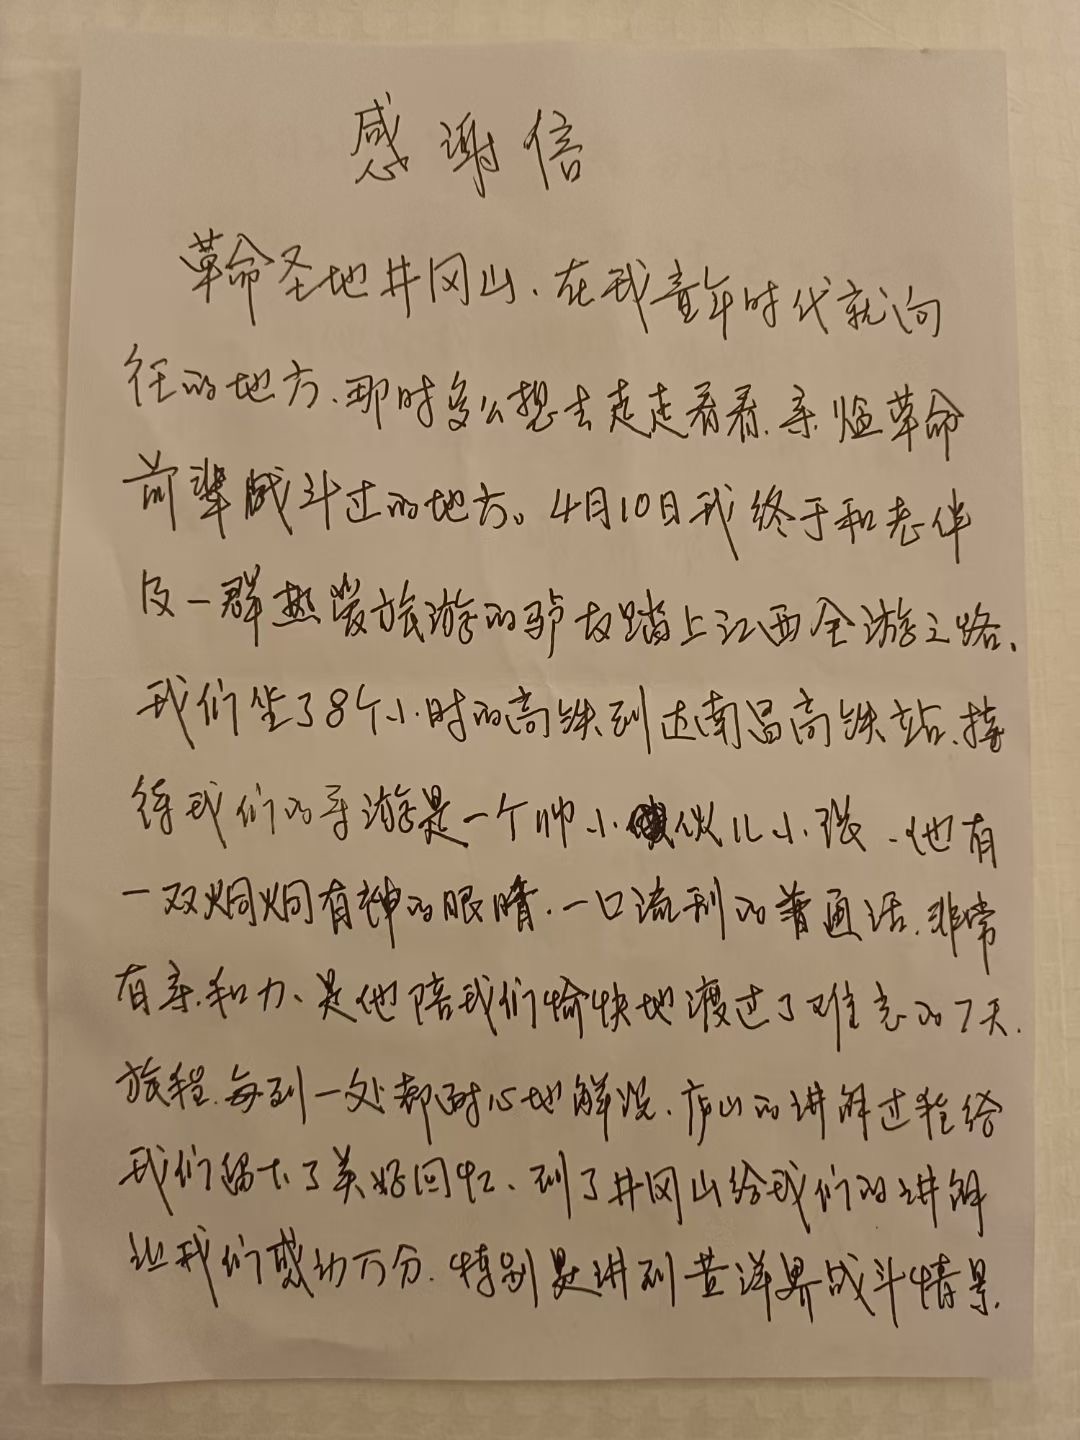 感谢信
革命圣地井冈山、在我青年时代就向
往的地方、那时多么想去走走看看、亲临革命
前辈战斗过的地方。4月10日我终于和老伴
及一群热爱旅游的驴友踏上江西全游之路、
我们坐了8个小时的高铁到达南昌高铁站、接
待我们的导游是一个帅小伙儿小张、他有
一双炯炯有神的眼睛、一口流利的普通话、非常
有亲和力、是他陪我们愉快地渡过了难忘的7天
旅程、每到一处都耐心地解说、庐山的讲解过程给
我们留下了美好回忆、到了井冈山给我们的讲解
让我们感动万分、特别是讲到黄洋界战斗情景